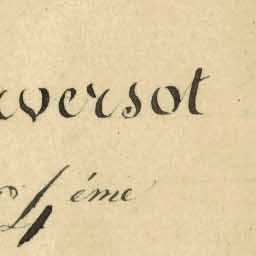 rversot
4ème